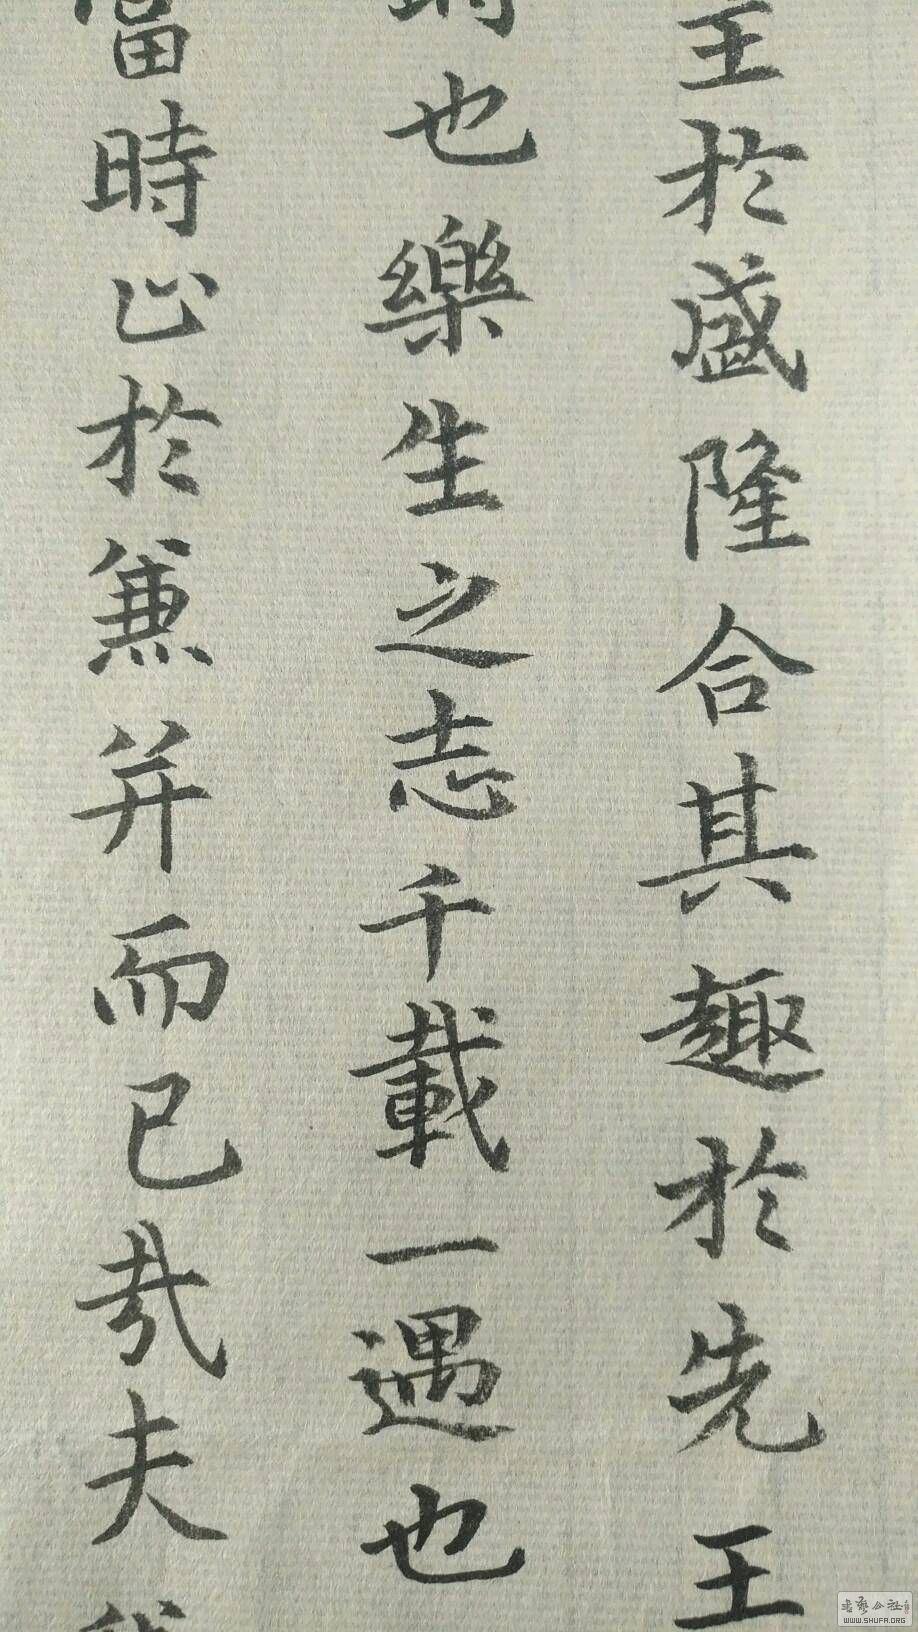 主於盛隆合其趣於先王
時也樂生之志千載一遇也
當時止於兼并而已哉夫
WWW.SHUFA.ORG